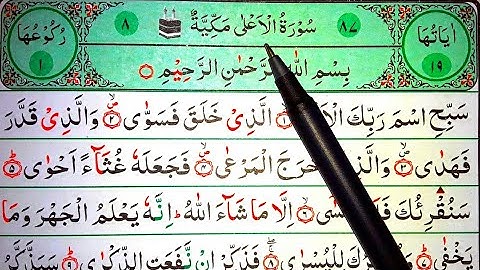 اٰيَاتُهَا ١٩
٨٧ سُوْرَةُ الْاَعْلٰى مَكِّيَّةٌ ٨
رُكُوْعُهَا ١
بِسْمِ اللّٰهِ الرَّحْمٰنِ الرَّحِيْمِ
سَبِّحِ اسْمَ رَبِّكَ الَّذِيْ خَلَقَ فَسَوّٰى ٢ وَالَّذِيْ قَدَّرَ
فَهَدٰى ٣ الْمَرْعٰى ٤ فَجَعَلَهٗ غُثَآءً اَحْوٰى ٥
سَنُقْرِئُكَ ٦ اِلَّا مَا شَآءَ اللّٰهُ ؕ اِنَّهٗ يَعْلَمُ الْجَهْرَ وَمَا
يَخْفٰى ٧ لِلْيُسْرٰى ٨ فَذَكِّرْ اِنْ نَّفَعَتِ الذِّكْرٰى ٩ سَيَذَّكَّرُ